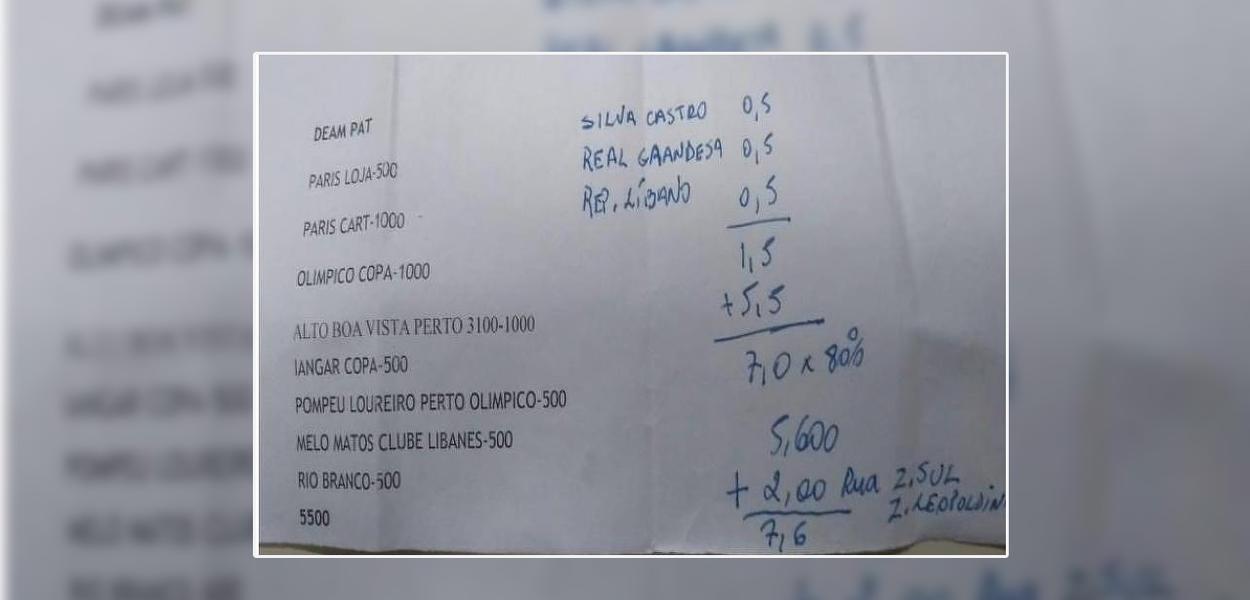 DEAM PAT
PARIS LOJA-500
PARIS CART-1000
OLIMPICO COPA-1000
ALTO BOA VISTA PERTO 3100-1000
IANGAR COPA-500
POMPEU LOUREIRO PERTO OLIMPICO-500
MELO MATOS CLUBE LIBANES-500
RIO BRANCO-500
5500
SILVA CASTRO 0,5
REAL GRANDESA 0,5
REP. LÍBANO 0,5
1,5
+5,5
7,0 x 80%
5,600
+ 2,00 Rua Z.SUL
Z.LEOPOLDIN
7,6